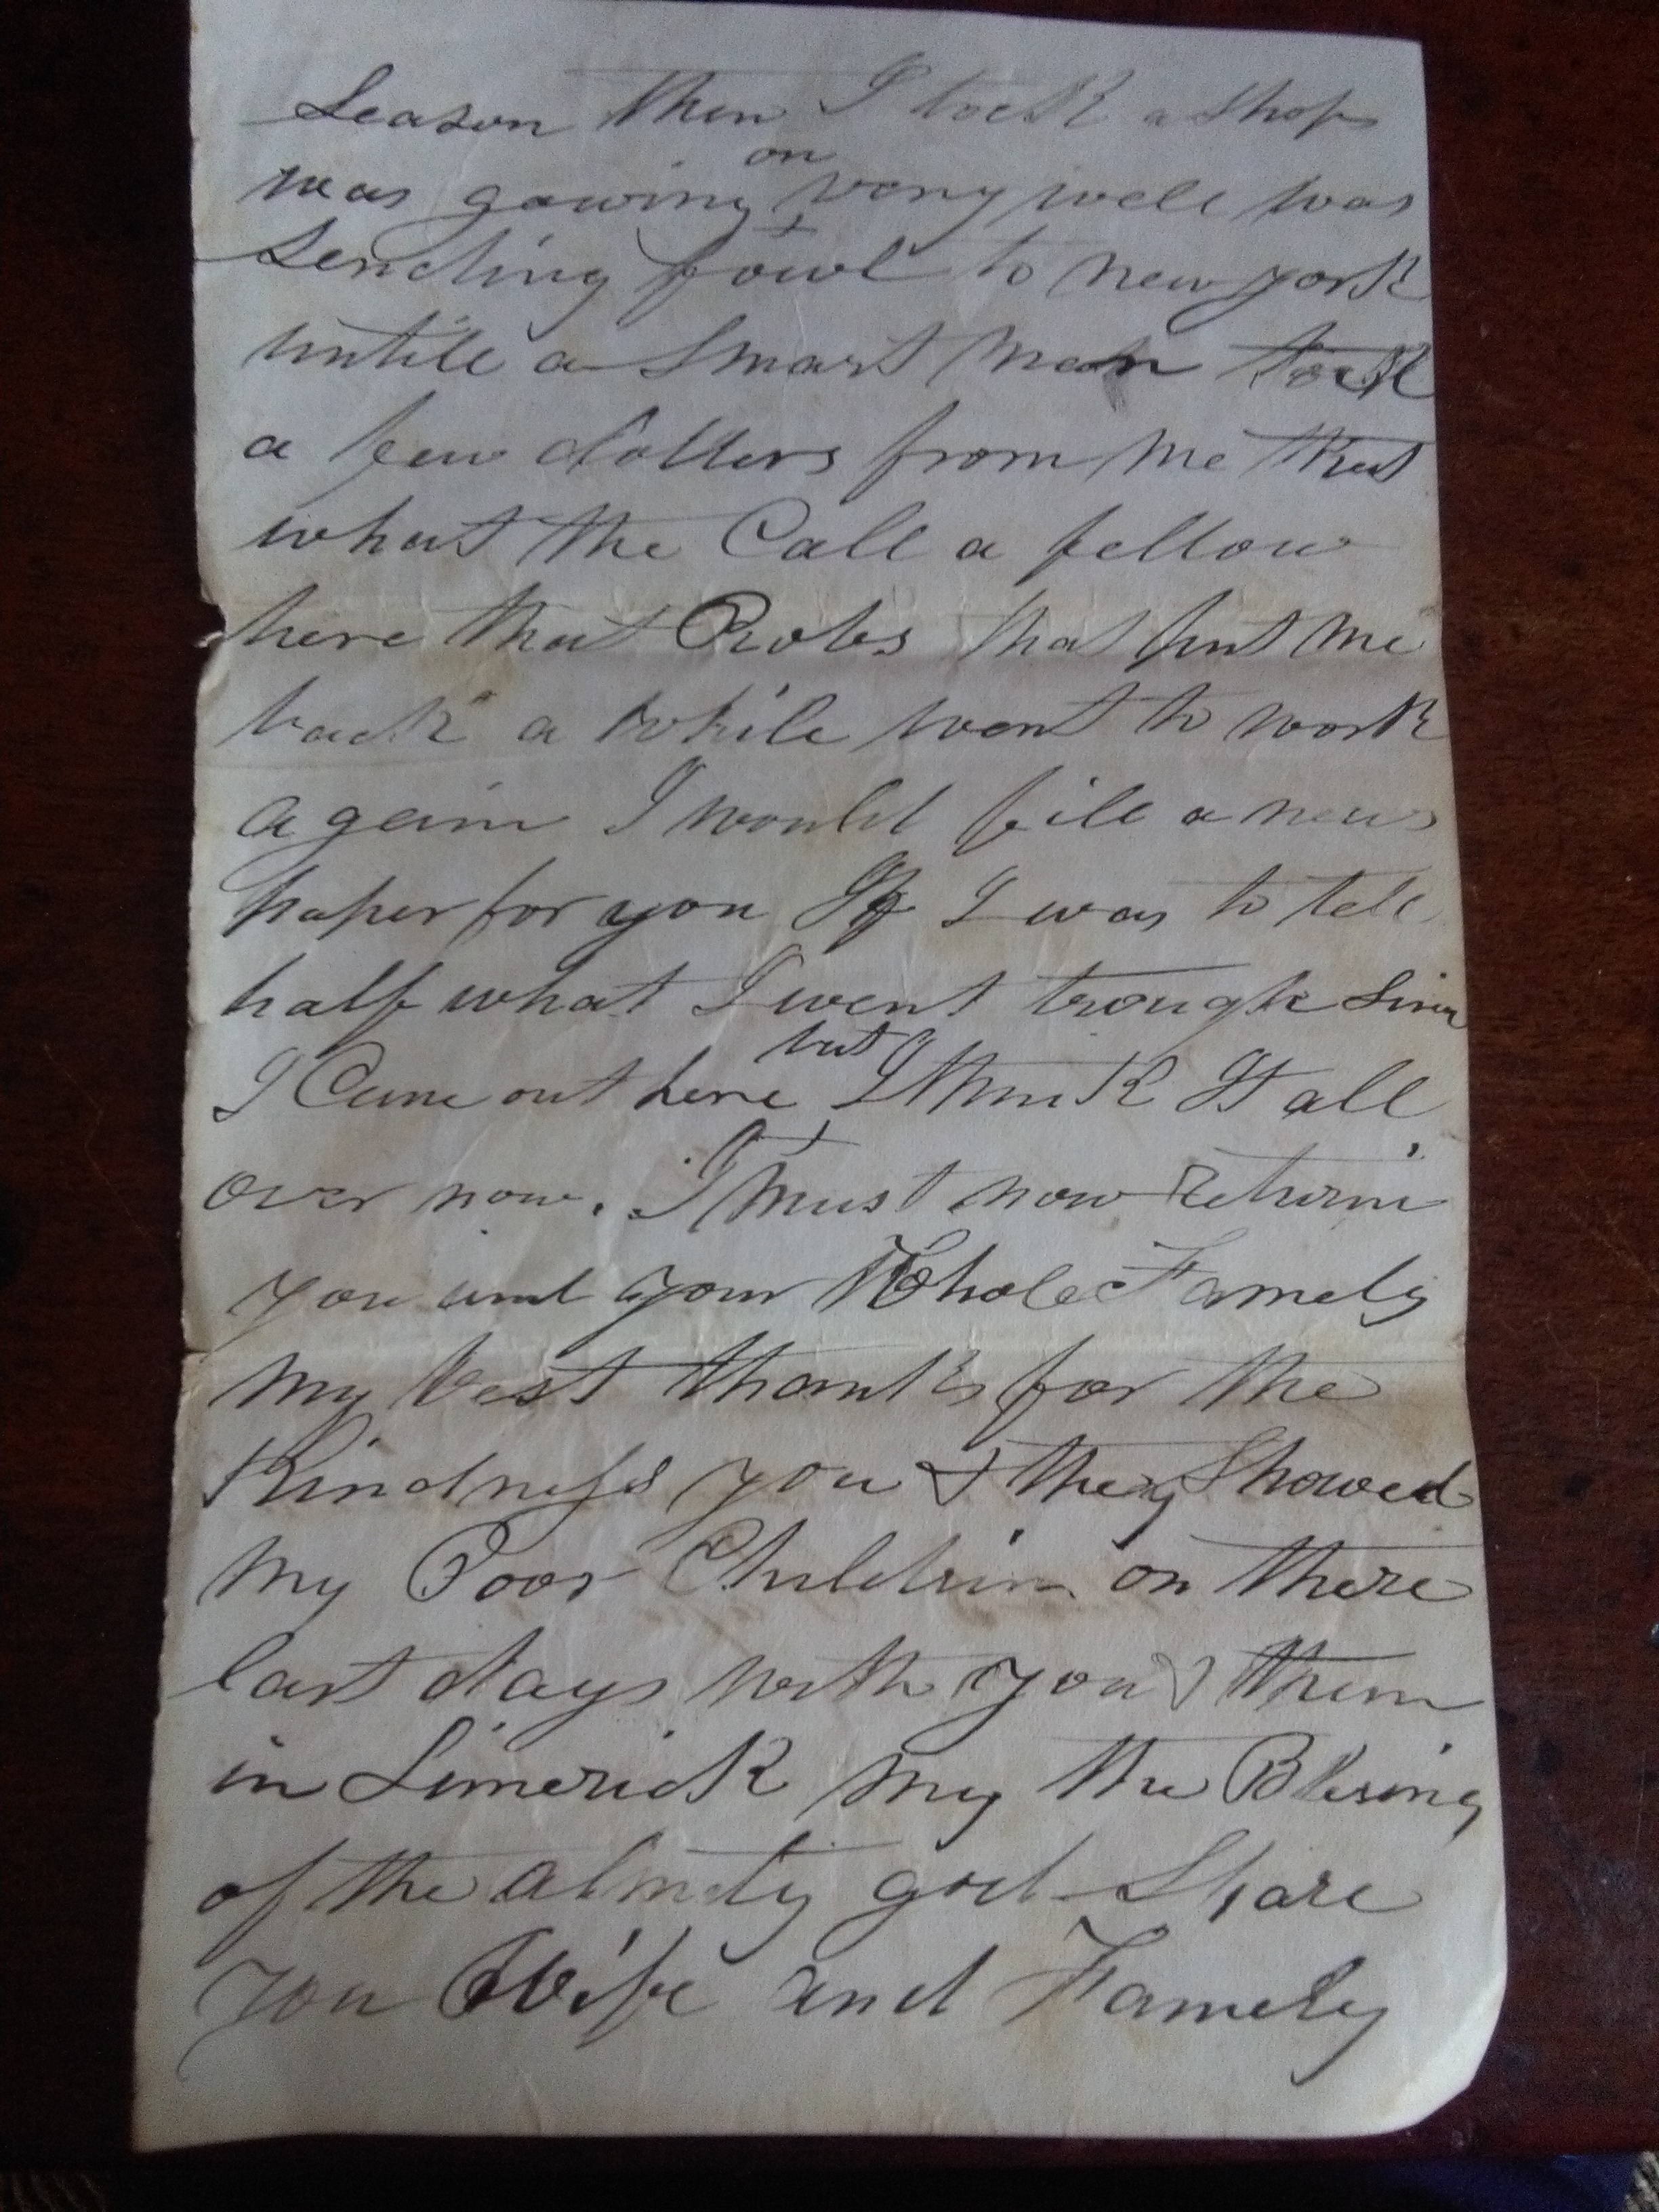 Season then I took a shop
was gowing on very well was
sending fowl to new york
untill a smart man took
a few dollers from me that
what the Call a fellow
here that Robs that put me
back a while went to work
again I would fill a news
paper for you If I was to tell
half what I went trough Since
I Came out here but I think It all
over now. I must now Return
you and your Whole Famely
my best thanks for the
Kindness you & they Showed
my Poor Children on there
last days with you & them
in Limerick my the Blesing
of the almity god Spare
you Wife and Famely